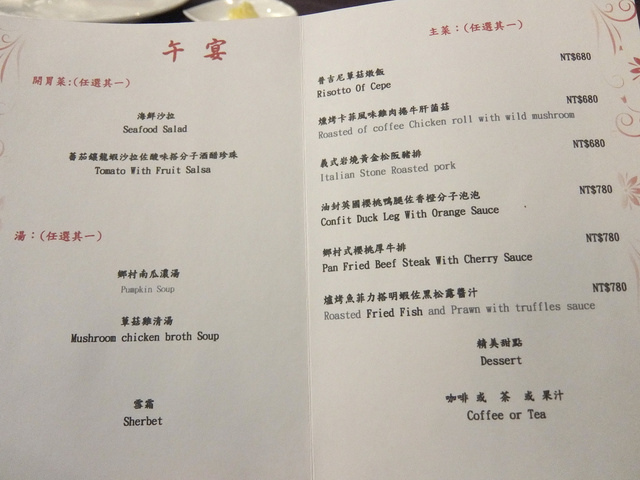 午宴
開胃菜:(任選其一)
海鮮沙拉
Seafood Salad
蕃茄螺龍蝦沙拉佐酸味搭分子酒醋珍珠
Tomato With Fruit Salsa
湯：(任選其一)
鄉村南瓜濃湯
Pumpkin Soup
蕈菇雞清湯
Mushroom chicken broth Soup
雪霜
Sherbet
主菜：(任選其一)
NT$680
普吉尼蕈菇燉飯
Risotto Of Cepe
NT$680
爐烤卡菲風味雞肉捲牛肝菌菇
Roasted of coffee Chicken roll with wild mushroom
NT$680
義式岩燒黃金松阪豬排
Italian Stone Roasted pork
NT$780
油封英國櫻桃鴨腿佐香橙分子泡泡
Confit Duck Leg With Orange Sauce
NT$780
鄉村式櫻桃厚牛排
Pan Fried Beef Steak With Cherry Sauce
NT$780
爐烤魚菲力搭明蝦佐黑松露醬汁
Roasted Fried Fish and Prawn with truffles sauce
精美甜點
Dessert
咖啡 或 茶 或 果汁
Coffee or Tea